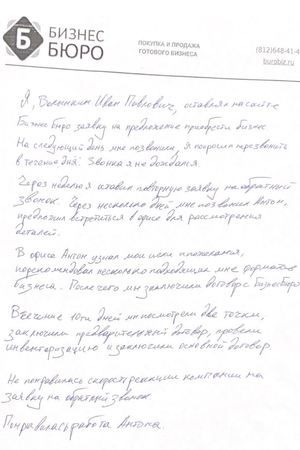 БИЗНЕС
БЮРО
ПОКУПКА И ПРОДАЖА
ГОТОВОГО БИЗНЕСА
(812)648-41-4
burobiz.ru
Я, Иван Павлович, оставлял на сайте
Бизнес Бюро заявку на предложение приобрести бизнес
На следующий день мне позвонили, я попросил перезвонить
в течение дня. Звонка я не дождался.
Через неделю я оставил повторную заявку на обратный
звонок. Через несколько дней мне позвонил Антон,
предложил встретиться в офисе для рассмотрения
деталей.
В офисе Антон узнал мои цели и пожелания,
порекомендовал несколько подходящих мне форматов
бизнеса. После чего мы заключили договор с Бизнес бюро
В течение 10ти дней мы посмотрели две точки,
заключили предварительный договор, провели
инвентаризацию и заключили основной договор.
Не понравилась скорость реакции компании на
заявку на обратный звонок
Понравилась работа Антона.